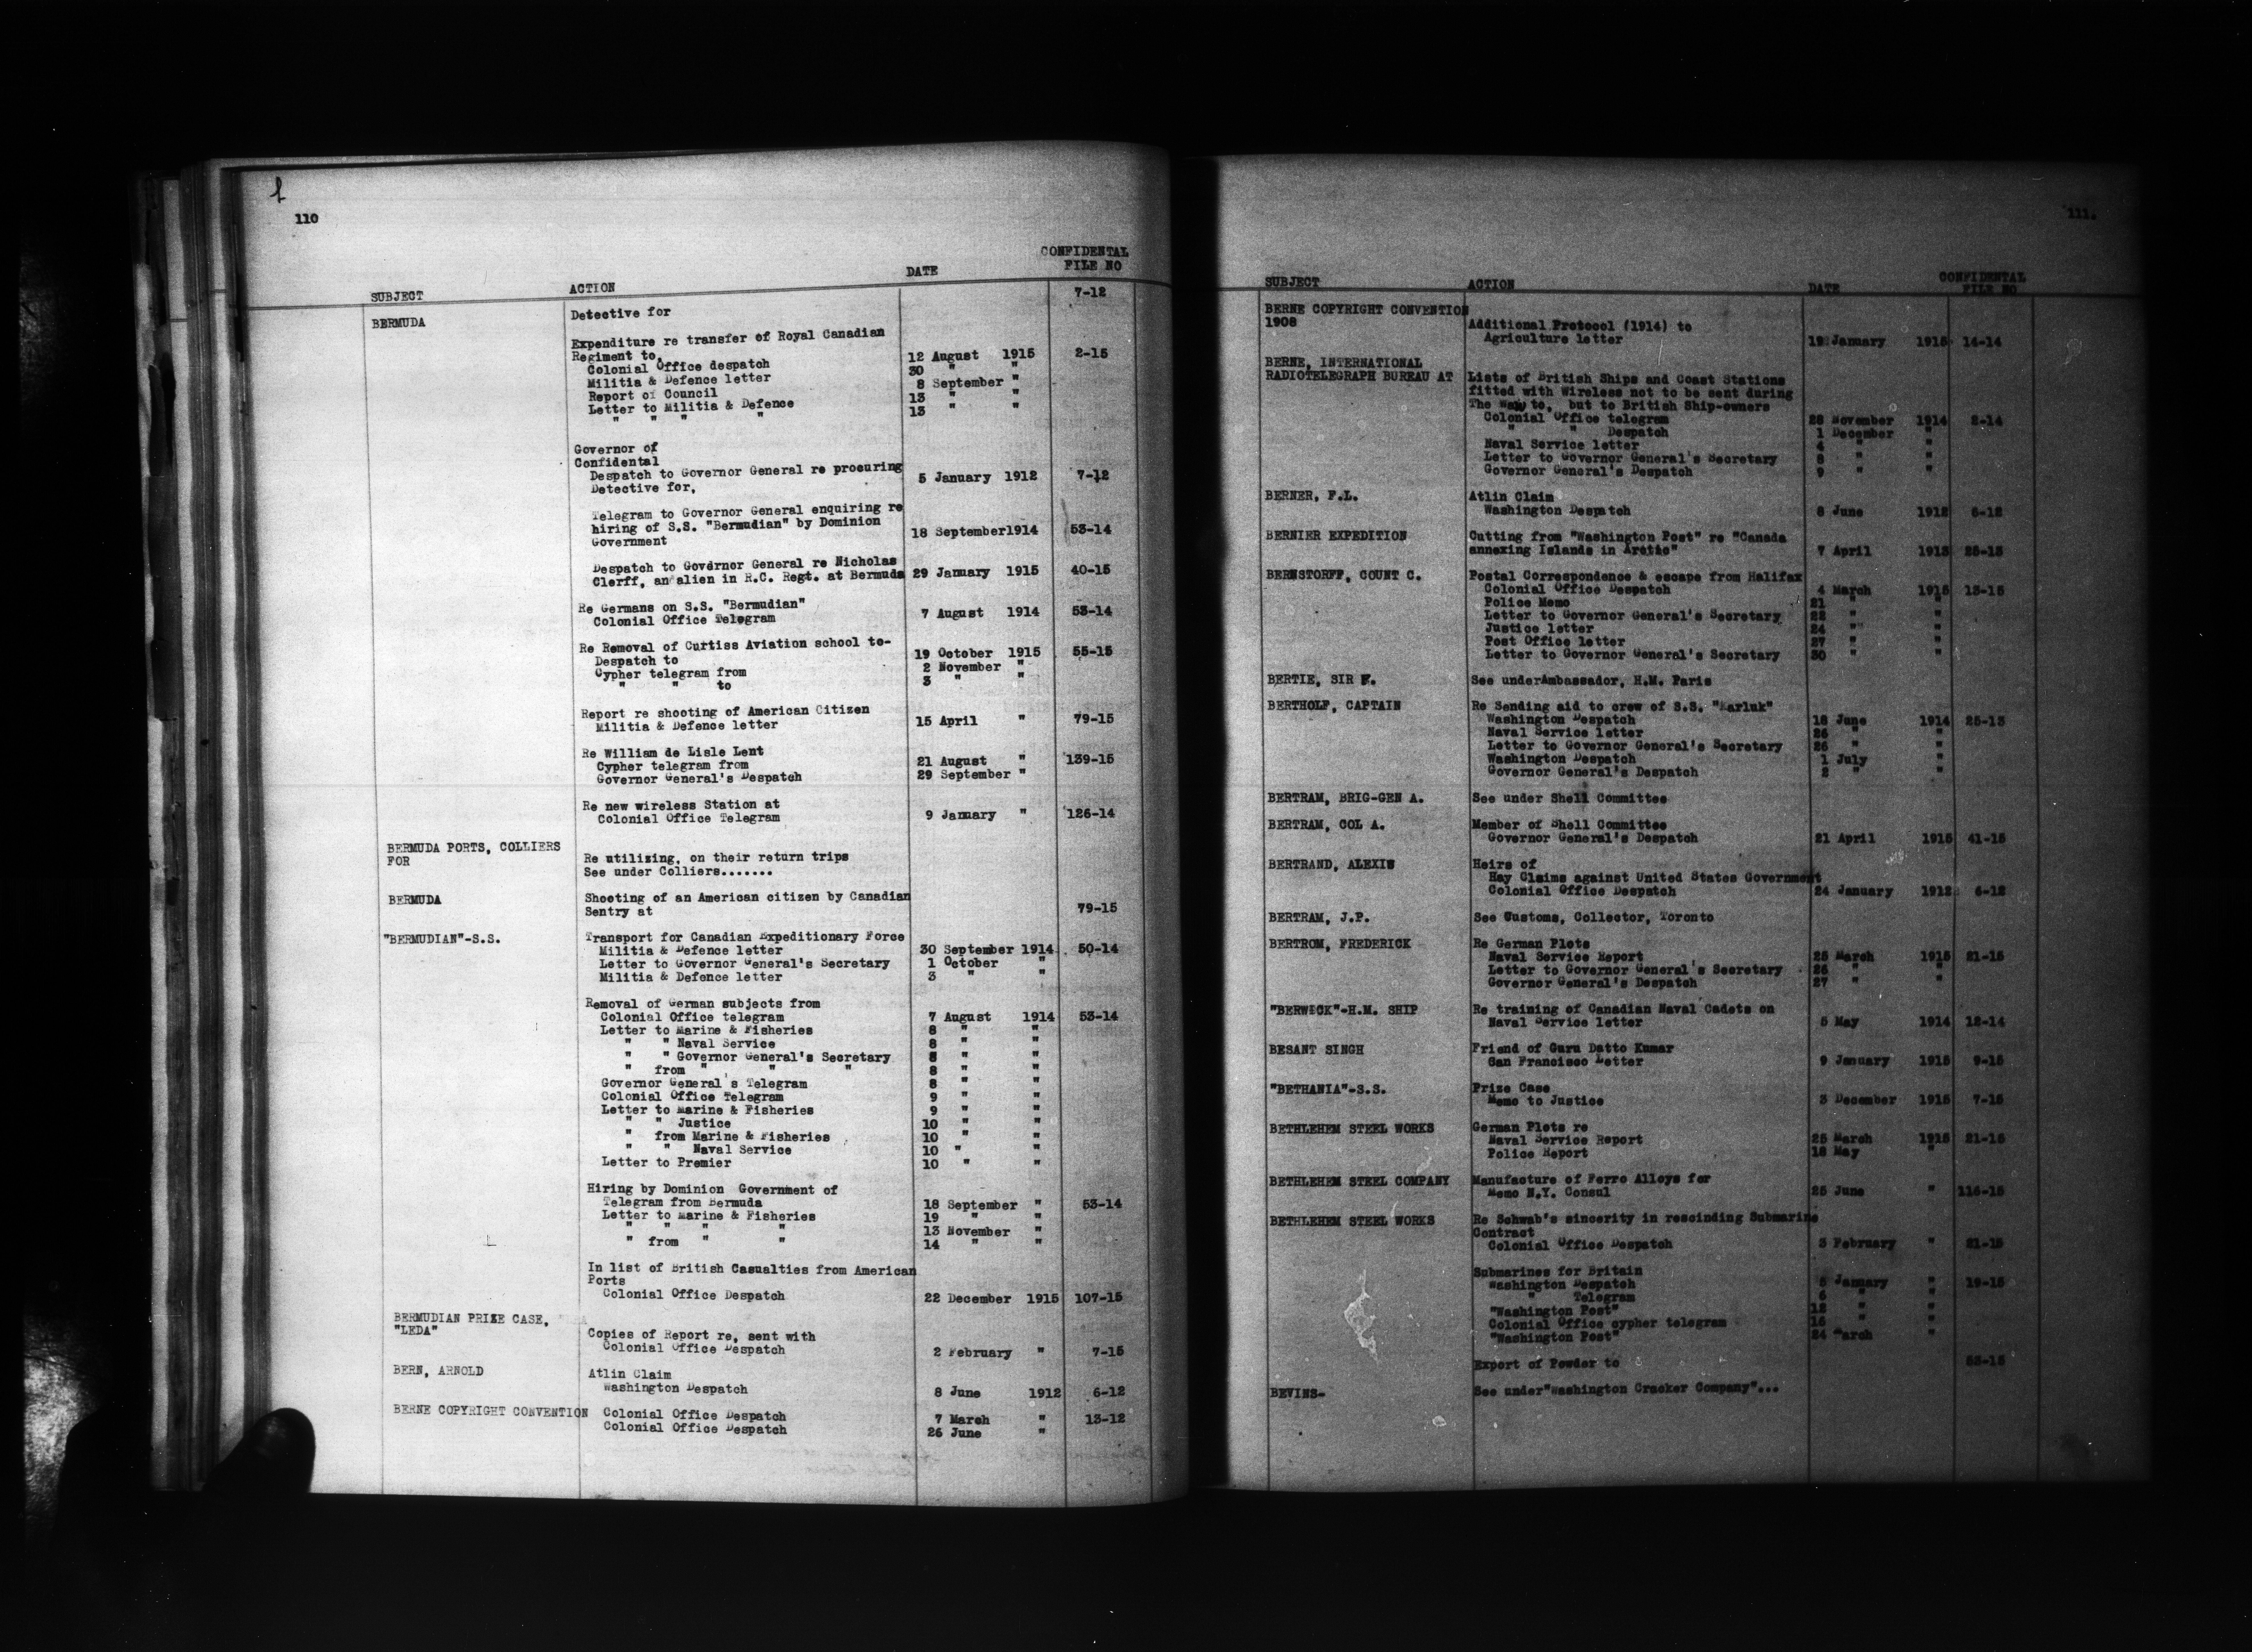 110
SUBJECT ACTION DATE CONFIDENTAL FILE NO
BERMUDA Detective for 7-12
Expenditure re transfer of Royal Canadian
Regiment to,
Colonial Office despatch 12 August 1915 2-15
Militia & Defence letter 30 " "
Report of Council 8 September "
Letter to Militia & Defence 13 " "
" " " " 13 " "
Governor of
Confidental
Despatch to Governor General re procuring
Detective for, 5 January 1912 7-12
Telegram to Governor General enquiring re
hiring of S.S. "Bermudian" by Dominion
Government 18 September1914 53-14
Despatch to Governor General re Nicholas
Clerff, an alien in R.C. Regt. at Bermuda 29 January 1915 40-15
Re Germans on S.S. "Bermudian"
Colonial Office Telegram 7 August 1914 53-14
Re Removal of Curtiss Aviation school to-
Despatch to 19 October 1915 55-15
Cypher telegram from 2 November "
" " to 3 " "
Report re shooting of American Citizen
Militia & Defence letter 15 April " 79-15
Re William de Lisle Lent
Cypher telegram from 21 August " 139-15
Governor General's Despatch 29 September "
Re new wireless Station at
Colonial Office Telegram 9 January " 126-14
BERMUDA PORTS, COLLIERS
FOR Re utilizing, on their return trips
See under Colliers.......
BERMUDA Shooting of an American citizen by Canadian
Sentry at 79-15
"BERMUDIAN"-S.S. Transport for Canadian Expeditionary Force
Militia & Defence letter 30 September 1914 50-14
Letter to Governor General's Secretary 1 October "
Militia & Defence letter 3 " "
Removal of German subjects from
Colonial Office telegram 7 August 1914 53-14
Letter to Marine & Fisheries 8 " "
" " Naval Service 8 " "
" " Governor General's Secretary 8 " "
" from " " " 8 " "
Governor General's Telegram 8 " "
Colonial Office Telegram 9 " "
Letter to Marine & Fisheries 9 " "
" " Justice 10 " "
" from Marine & Fisheries 10 " "
" " Naval Service 10 " "
Letter to Premier 10 " "
Hiring by Dominion Government of
Telegram from Bermuda 18 September " 53-14
Letter to Marine & Fisheries 19 " "
" " " " 13 November "
" from " " 14 " "
In list of British Casualties from American
Ports
Colonial Office Despatch 22 December 1915 107-15
BERMUDIAN PRIZE CASE,
"LEDA" Copies of Report re, sent with
Colonial Office Despatch 2 February " 7-15
BERN, ARNOLD Atlin Claim
Washington Despatch 8 June 1912 6-12
BERNE COPYRIGHT CONVENTION Colonial Office Despatch 7 March " 13-12
Colonial Office Despatch 26 June "
111.
SUBJECT ACTION DATE CONFIDENTAL FILE NO
BERNE COPYRIGHT CONVENTION
1908 Additional Protocol (1914) to
Agriculture letter 19 January 1915 14-14
BERNE, INTERNATIONAL
RADIOTELEGRAPH BUREAU AT Lists of British Ships and Coast Stations
fitted with Wireless not to be sent during
The War to, but to British Ship-owners
Colonial Office telegram 28 November 1914 2-14
" " Despatch 1 December "
Naval Service letter 4 " "
Letter to Governor General's Secretary 8 " "
Governor General's Despatch 9 " "
BERNER, F.L. Atlin Claim
Washington Despatch 8 June 1912 6-12
BERNIER EXPEDITION Cutting from "Washington Post" re "Canada
annexing Islands in Arctic" 7 April 1913 25-13
BERNSTORFF, COUNT C. Postal Correspondence & escape from Halifax
Colonial Office Despatch 4 March 1915 13-15
Police Memo 21 " "
Letter to Governor General's Secretary 22 " "
Justice letter 24 " "
Post Office letter 27 " "
Letter to Governor General's Secretary 30 " "
BERTIE, SIR F. See underAmbassador, H.M. Paris
BERTHOLF, CAPTAIN Re Sending aid to crew of S.S. "Karluk"
Washington Despatch 18 June 1914 25-13
Naval Service letter 26 " "
Letter to Governor General's Secretary 26 " "
Washington Despatch 1 July "
Governor General's Despatch 2 " "
BERTRAM, BRIG-GEN A. See under Shell Committee
BERTRAM, COL A. Member of Shell Committee
Governor General's Despatch 21 April 1915 41-15
BERTRAND, ALEXIS Heirs of
Hay Claims against United States Government
Colonial Office Despatch 24 January 1912 6-12
BERTRAM, J.P. See Customs, Collector, Toronto
BERTROM, FREDERICK Re German Plots
Naval Service Report 25 March 1915 21-15
Letter to Governor General's Secretary 26 " "
Governor General's Despatch 27 " "
"BERWICK"-H.M. SHIP Re training of Canadian Naval Cadets on
Naval Service letter 5 May 1914 12-14
BESANT SINGH Friend of Guru Datto Kumar
San Francisco Letter 9 January 1915 9-15
"BETHANIA"-S.S. Prize Case
Memo to Justice 3 December 1915 7-15
BETHLEHEM STEEL WORKS German Plots re
Naval Service Report 25 March 1915 21-15
Police Report 18 May "
BETHLEHEM STEEL COMPANY Manufacture of Ferro Alloys for
Memo N.Y. Consul 25 June " 116-15
BETHLEHEM STEEL WORKS Re Schwab's sincerity in rescinding Submarine
Contract
Colonial Office Despatch 3 February " 21-15
Submarines for Britain
Washington Despatch 5 January " 19-15
" Telegram 6 " "
"Washington Post" 12 " "
Colonial Office cypher telegram 15 " "
"Washington Post" 24 March "
Export of Powder to 53-15
BEVINS- See under"Washington Cracker Company"...